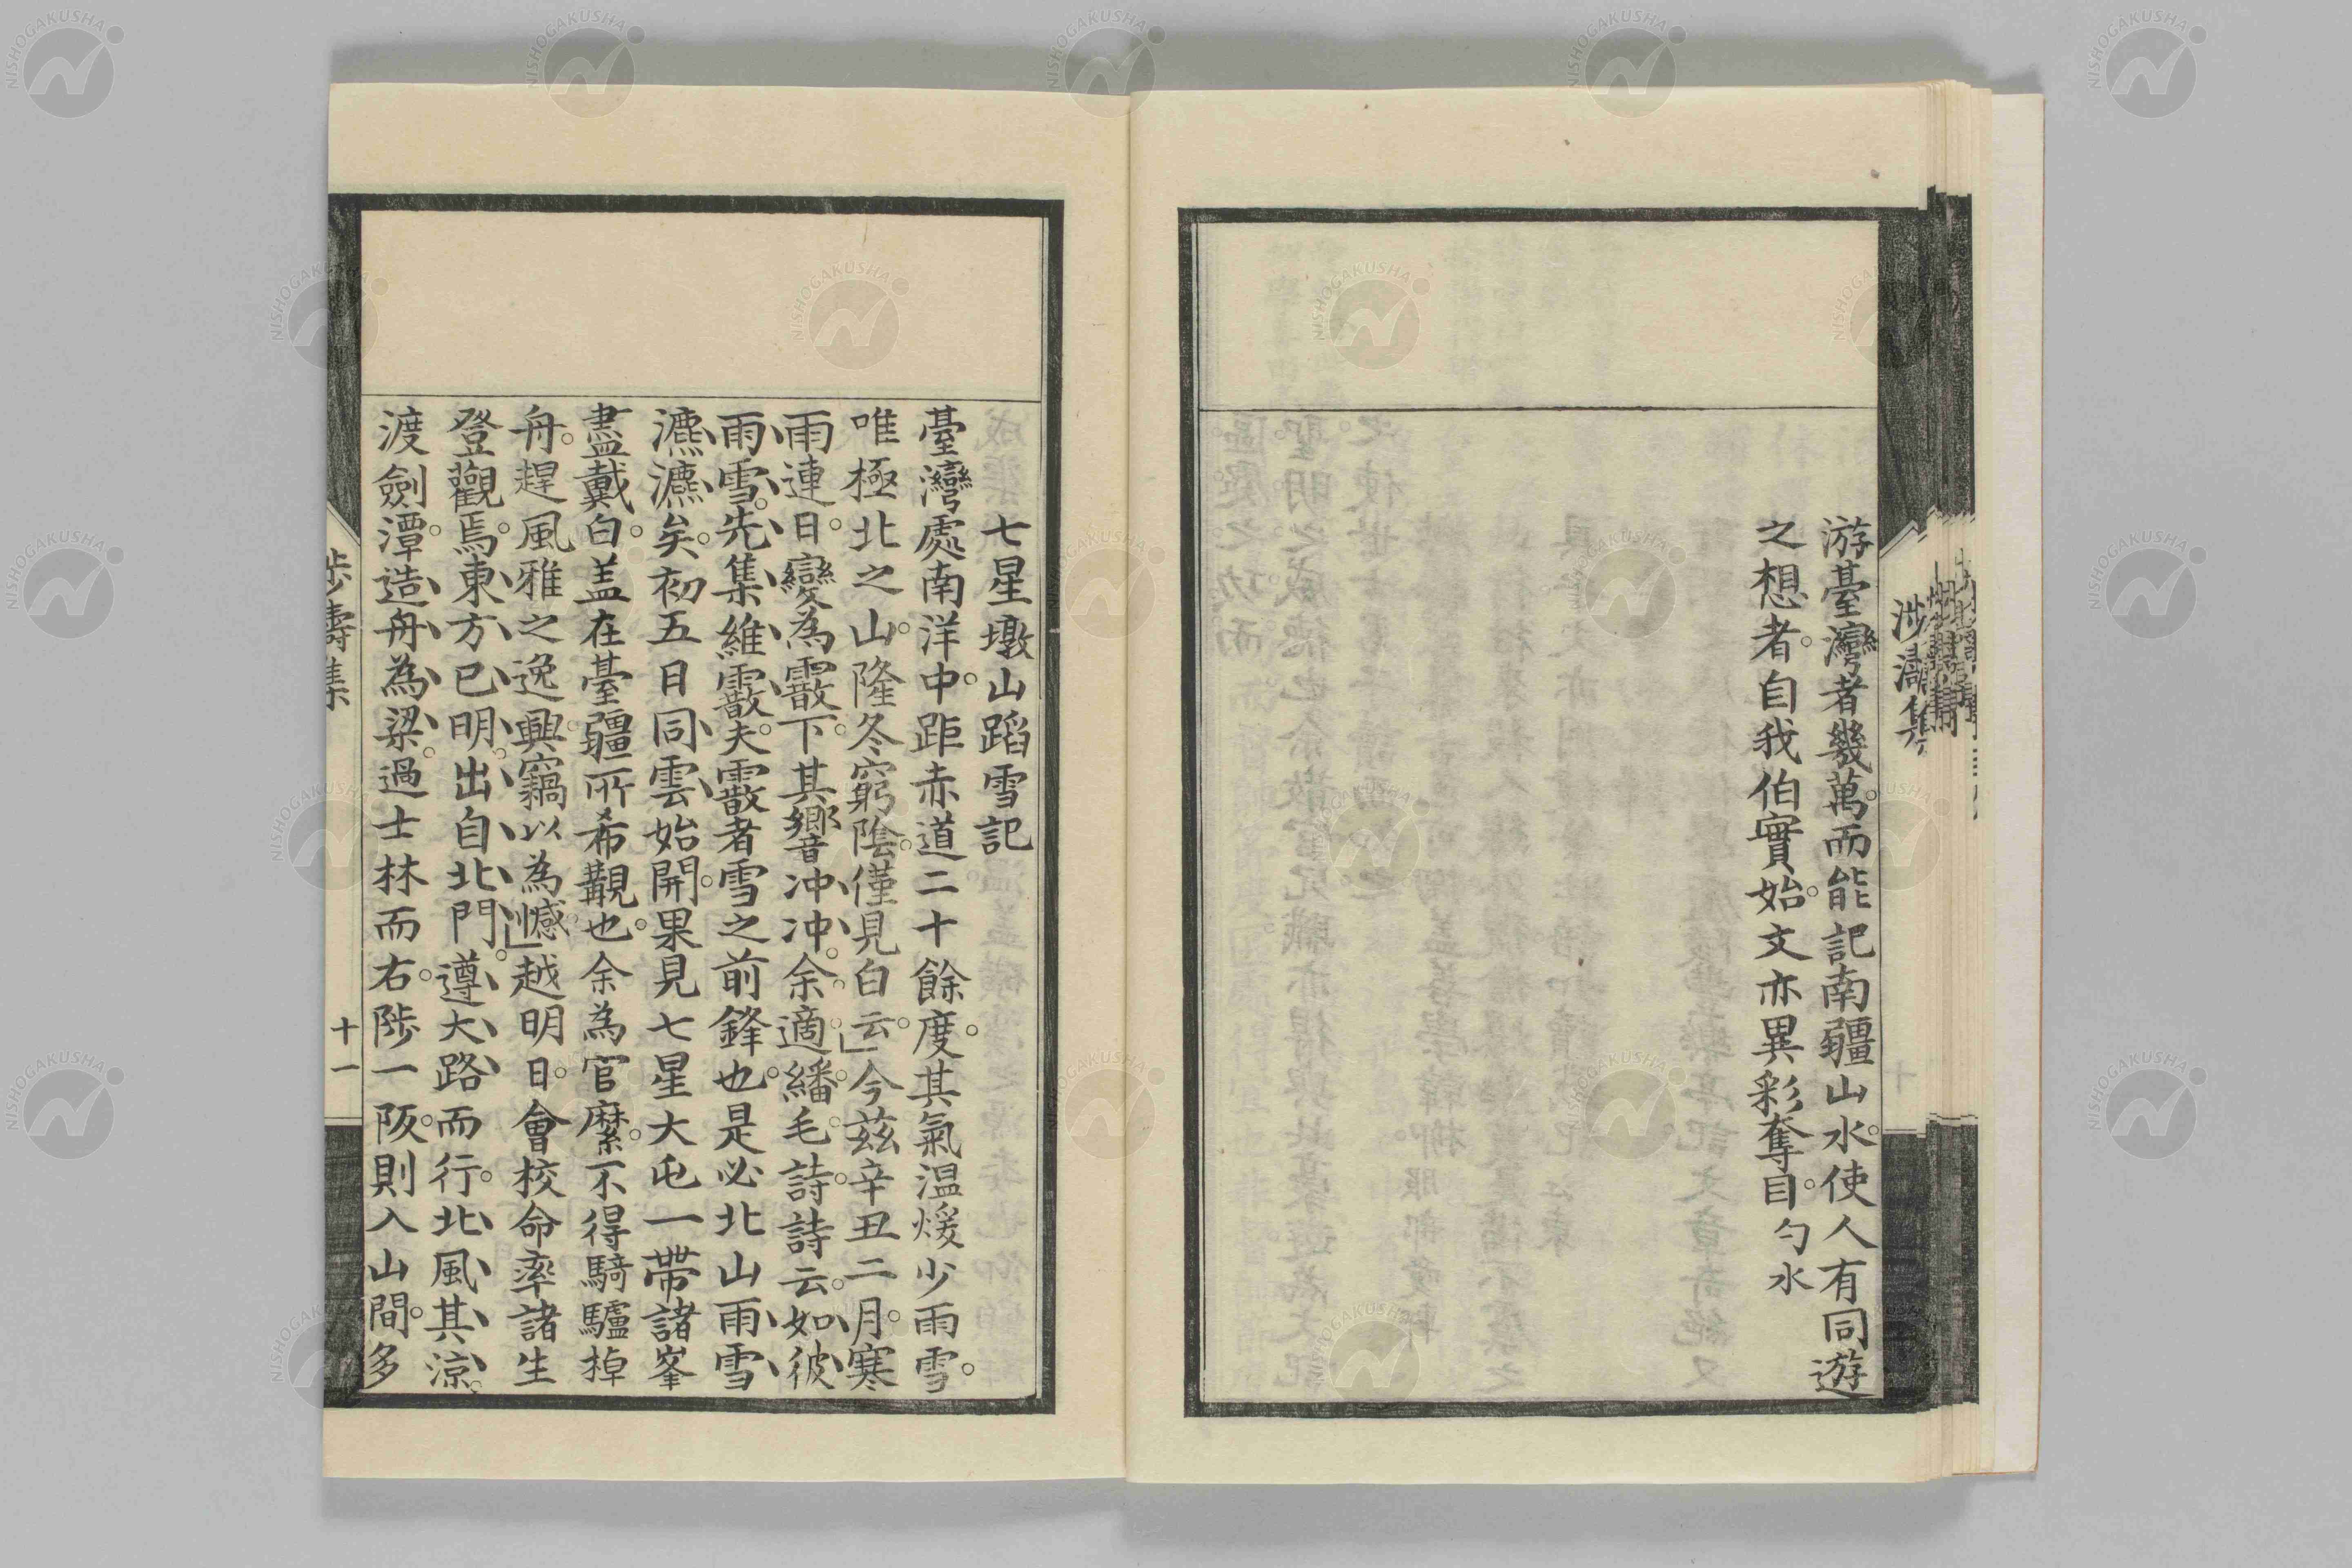 涉濤集
游臺灣者幾萬。而能記南疆山水。使人有同遊
之想者。自我伯實始。文亦異彩奪目。勻水
七星墩山蹈雪記
臺灣處南洋中。距赤道二十餘度。其氣温煖少雨雪。
唯極北之山。隆冬窮陰。僅見白云。」今茲辛丑二月。寒
雨連日。變為霰下。其響冲冲。余適繙毛詩。詩云。如彼
雨雪。先集維霰。夫霰者雪之前鋒也。是必北山雨雪
瀌瀌矣。初五日同雲始開。果見七星大屯一帶諸峯
盡戴白。盖在臺疆所希覯也。余為官縻。不得騎驢棹
舟。趕風雅之逸興。竊以為憾。」越明日。會校命率諸生
登觀焉。東方已明。出自北門。遵大路而行。北風其涼。
渡劍潭。造舟為梁。過士林而右。陟一阪。則入山間。多
涉濤集
十一
NISHOGAKUSHA